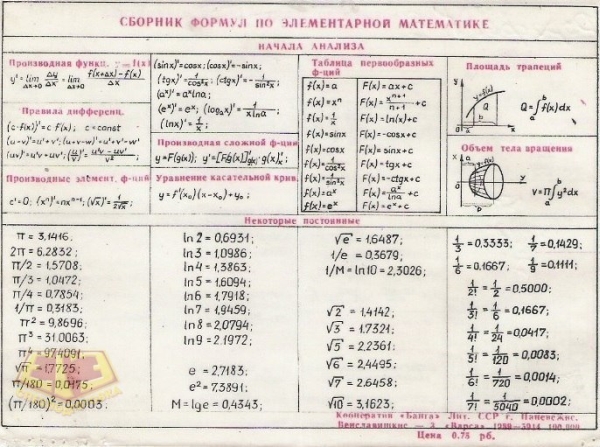 СБОРНИК ФОРМУЛ ПО ЭЛЕМЕНТАРНОЙ МАТЕМАТИКЕ
НАЧАЛА АНАЛИЗА
Производная функ.
y'= lim Δy/Δx = lim (f(x+Δx)-f(x))/Δx
Δx→0 Δx→0
Правила дифференц.
(c·f(x))'=c f'(x); c=const
(u-v)'=u'+v'; (u+v-w)'=u'+v'-w'
(uv)'=u'v+uv'; (u/v)'=(u'v-uv')/v²
Производные элемент. ф-ций
c'=0; (xⁿ)'=nxⁿ⁻¹; (√x)'=1/(2√x);
(sinx)'=cosx; (cosx)'=-sinx;
(tgx)'=1/cos²x; (ctgx)'=-1/sin²x;
(aˣ)'=aˣlna;
(eˣ)'=eˣ; (logₐx)'=1/(xlna);
(lnx)'=1/x;
Производная сложной ф-ции
y=F(g(x));
Уравнение касательной крив.
y=f'(x₀)(x-x₀)+y₀;
Таблица первообразных
ф-ций
f(x)=a F(x)=ax+c
f(x)=xⁿ F(x)=xⁿ⁺¹/(n+1)+c
f(x)=1/x F(x)=ln(x)+c
f(x)=sinx F(x)=-cosx+c
f(x)=cosx F(x)=sinx+c
f(x)=1/cos²x F(x)=tgx+c
f(x)=1/sin²x F(x)=-ctgx+c
f(x)=aˣ F(x)=aˣ/lna+c
f(x)=eˣ F(x)=eˣ+c
Площадь трапеций
y
y=f(x)
Q
a b x
Q=∫f(x)dx
Объем тела вращения
v=π∫y²dx
Некоторые постоянные
π = 3,1416;
2π = 6,2832;
π/2 = 1,5708;
π/3 = 1,0472;
π/4 = 0,7854;
1/π = 0,3183;
π² = 9,8696;
π³ = 31,0063;
π⁴ = 97,4091;
√π = 1,7725;
π/180 = 0,0175;
(π/180)² = 0,0003;
ln 2 = 0,6931;
ln 3 = 1,0986;
ln 4 = 1,3863;
ln 5 = 1,6094;
ln 6 = 1,7918;
ln 7 = 1,9459;
ln 8 = 2,0794;
ln 9 = 2,1972;
e = 2,7183;
e² = 7,3891;
M = lg e = 0,4343;
√e = 1,6487;
1/e = 0,3679;
1/M = ln10 = 2,3026;
√2 = 1,4142;
√3 = 1,7321;
√5 = 2,2361;
√6 = 2,4495;
√7 = 2,6458;
√10 = 3,1623;
1/3 = 0,3333; 1/7 = 0,1429;
1/6 = 0,1667; 1/9 = 0,1111;
1/2! = 1/2 = 0,5000;
1/3! = 1/6 = 0,1667;
1/4! = 1/24 = 0,0417;
1/5! = 1/120 = 0,0083;
1/6! = 1/720 = 0,0014;
1/7! = 1/5040 = 0,0002;
Кооператив «Банга» Лит. ССР г. Паневежис,
Цена 0.75 рб.